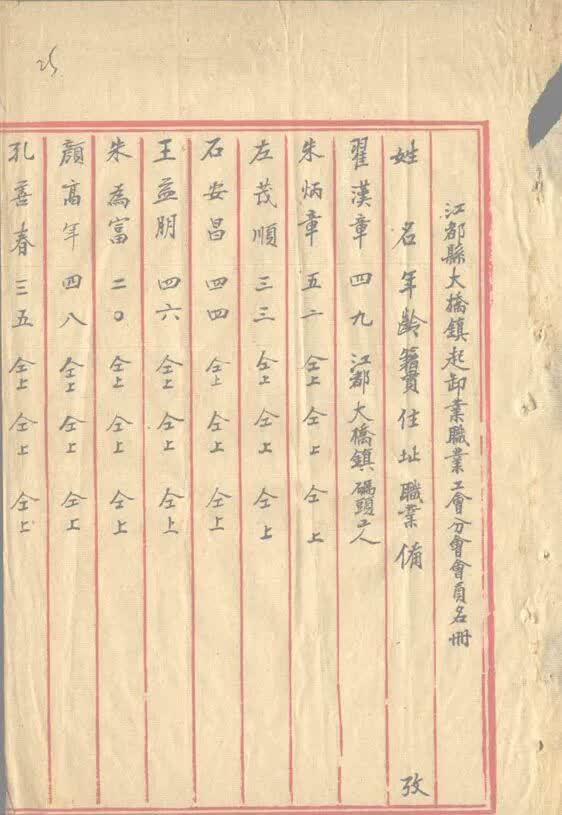 江都縣大橋鎮起卸業職業工會分會會員名冊
姓名年齡籍貫住址職業備攷
翟漢章四九江都大橋鎮碼頭工人
朱炳章五二仝上仝上仝上
左茂順三三仝上仝上仝上
石安昌四四仝上仝上仝上
王益朋四六仝上仝上仝上
朱為富二〇仝上仝上仝上
顏高年四八仝上仝上仝上
孔善春三五仝上仝上仝上
25